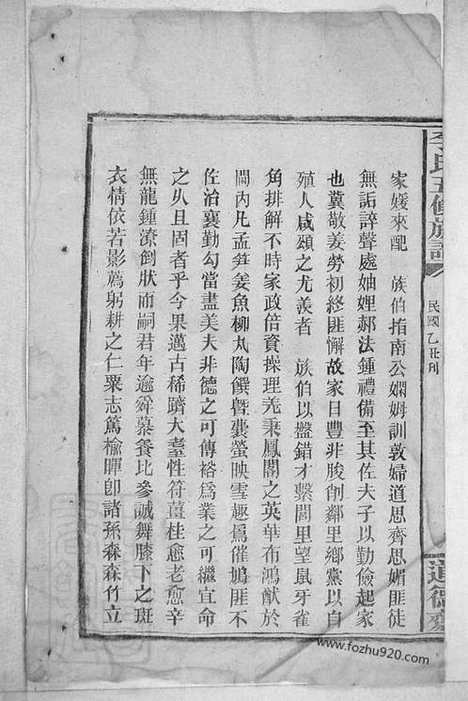 李氏五修族譜
民國乙丑刊
道德慶
家媛來配 族伯指南公嫻姆訓敦婦道思齊思媚匪徒
無詬誶聲處妯娌郝法鍾禮備至其佐夫子以勤儉起家
也冀敬姜勞初終匪懈故家日豐非朘削鄰里鄉黨以自
殖人咸頌之尤羨者 族伯以盤錯才繫閭里望鼠牙雀
角排解不時家政倍資操理羌秉鳳閣之英華布鴻猷於
閫內凡孟笋姜魚柳丸陶饌曁囊螢映雪趣爲催鳩匪不
佐治襄勤勾當盡美夫非德之可傳裕爲業之可繼宜命
之乆且固者乎今果邁古稀躋大耋性符薑桂愈老愈辛
無龍鍾潦倒狀而嗣君年逾舜慕養比參誠舞膝下之斑
衣情依若影薦躬耕之仁粟志篤楡暉卽諸孫森森竹立
www.fozhu920.com